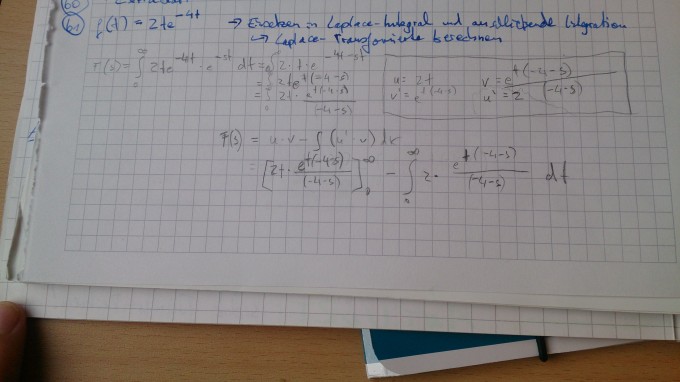 b) f(t) = 2te^{-4t} → Ersetzen in Laplace-Integral und anschließende Integration
↳ Laplace-Transformierte berechnen
F(s) = ∫_0^∞ 2te^{-4t} · e^{-st} dt = ∫_0^∞ 2 · t · e^{-4t-st}
= ∫_0^∞ 2te^{t(-4-s)}
= ∫_0^∞ 2t · e^{t(-4-s)}/(-4-s)
u = 2t v = e^{t(-4-s)}/(-4-s)
v' = e^{t(-4-s)} u' = 2
F(s) = u · v - ∫ (u' · v) dx
= [2t · e^{t(-4-s)}/(-4-s)]_0^∞ - ∫_0^∞ 2 · e^{t(-4-s)}/(-4-s) dt